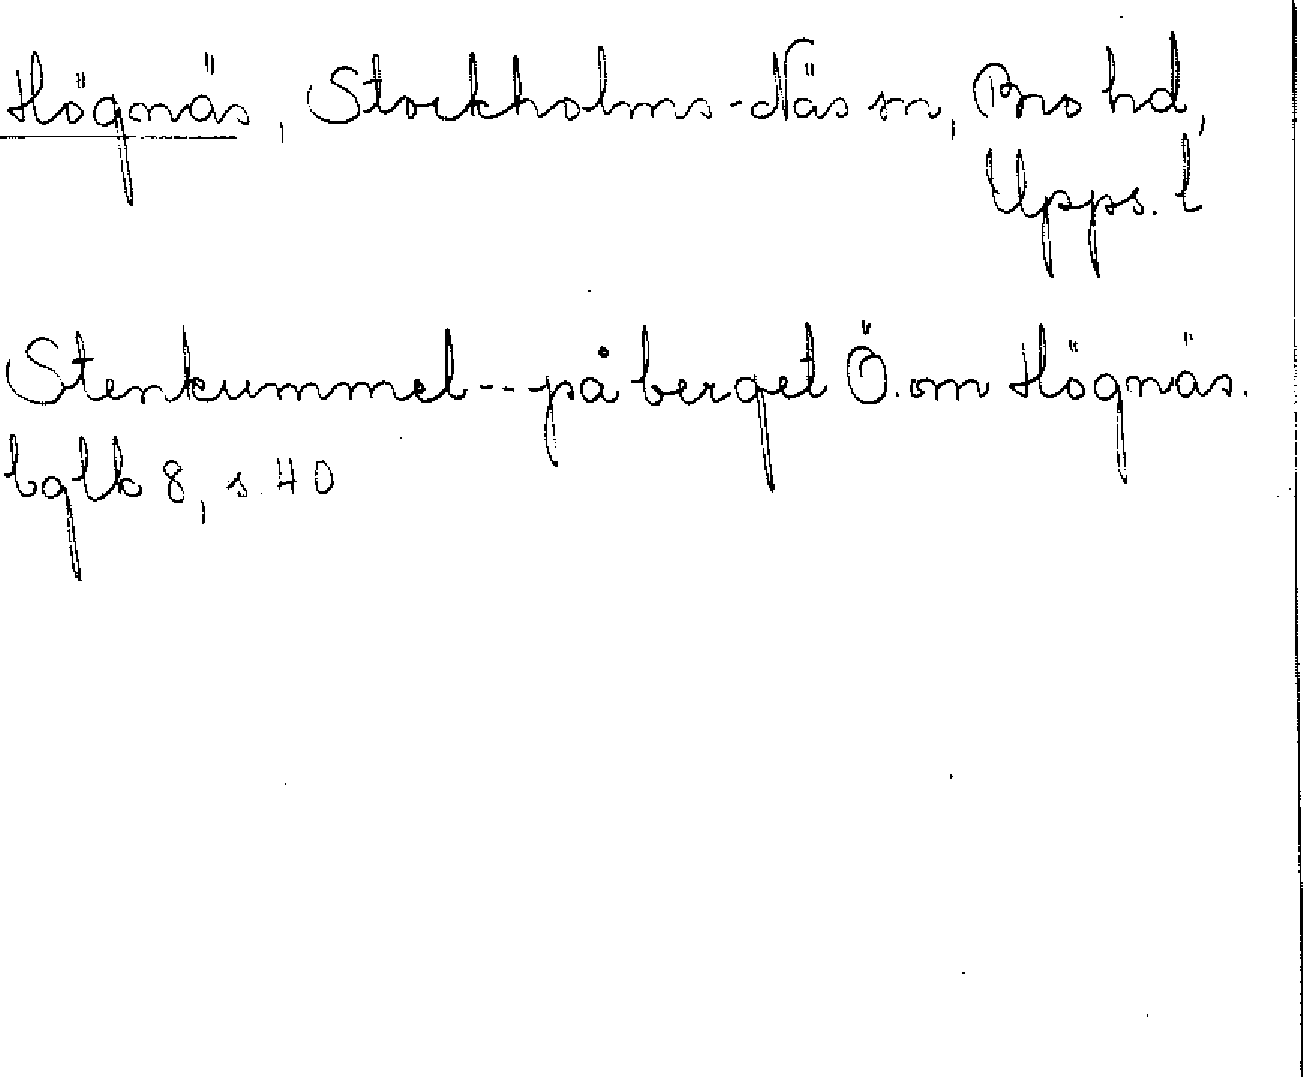 Högnäs, Stockholms-Näs sn, Bro hd,
Upps. l
Stenkummel -- på berget Ö. om Högnäs.
bglb 8, s. 40